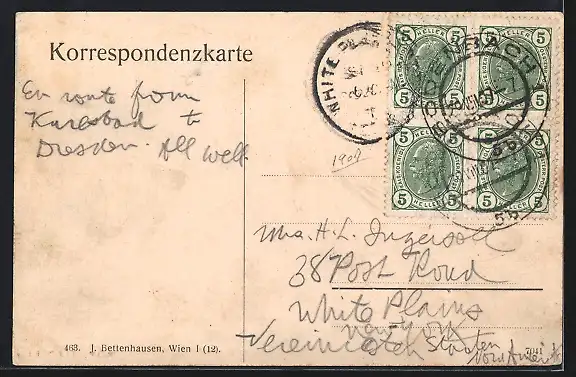 Korrespondenzkarte
En route from
Karlsbad to
Dresden. All well.
WHITE PLA
1909
5 5
HELLER
5 5
5 5
HELLER
5 5
5 5
HELLER
5 5
5 5
HELLER
5 5
Mrs. H. L. Ingersoll
38 Post Road
White Plains
New York
Vereinigten Staaten
Nord Amerika
463. J. Bettenhausen, Wien I (12).